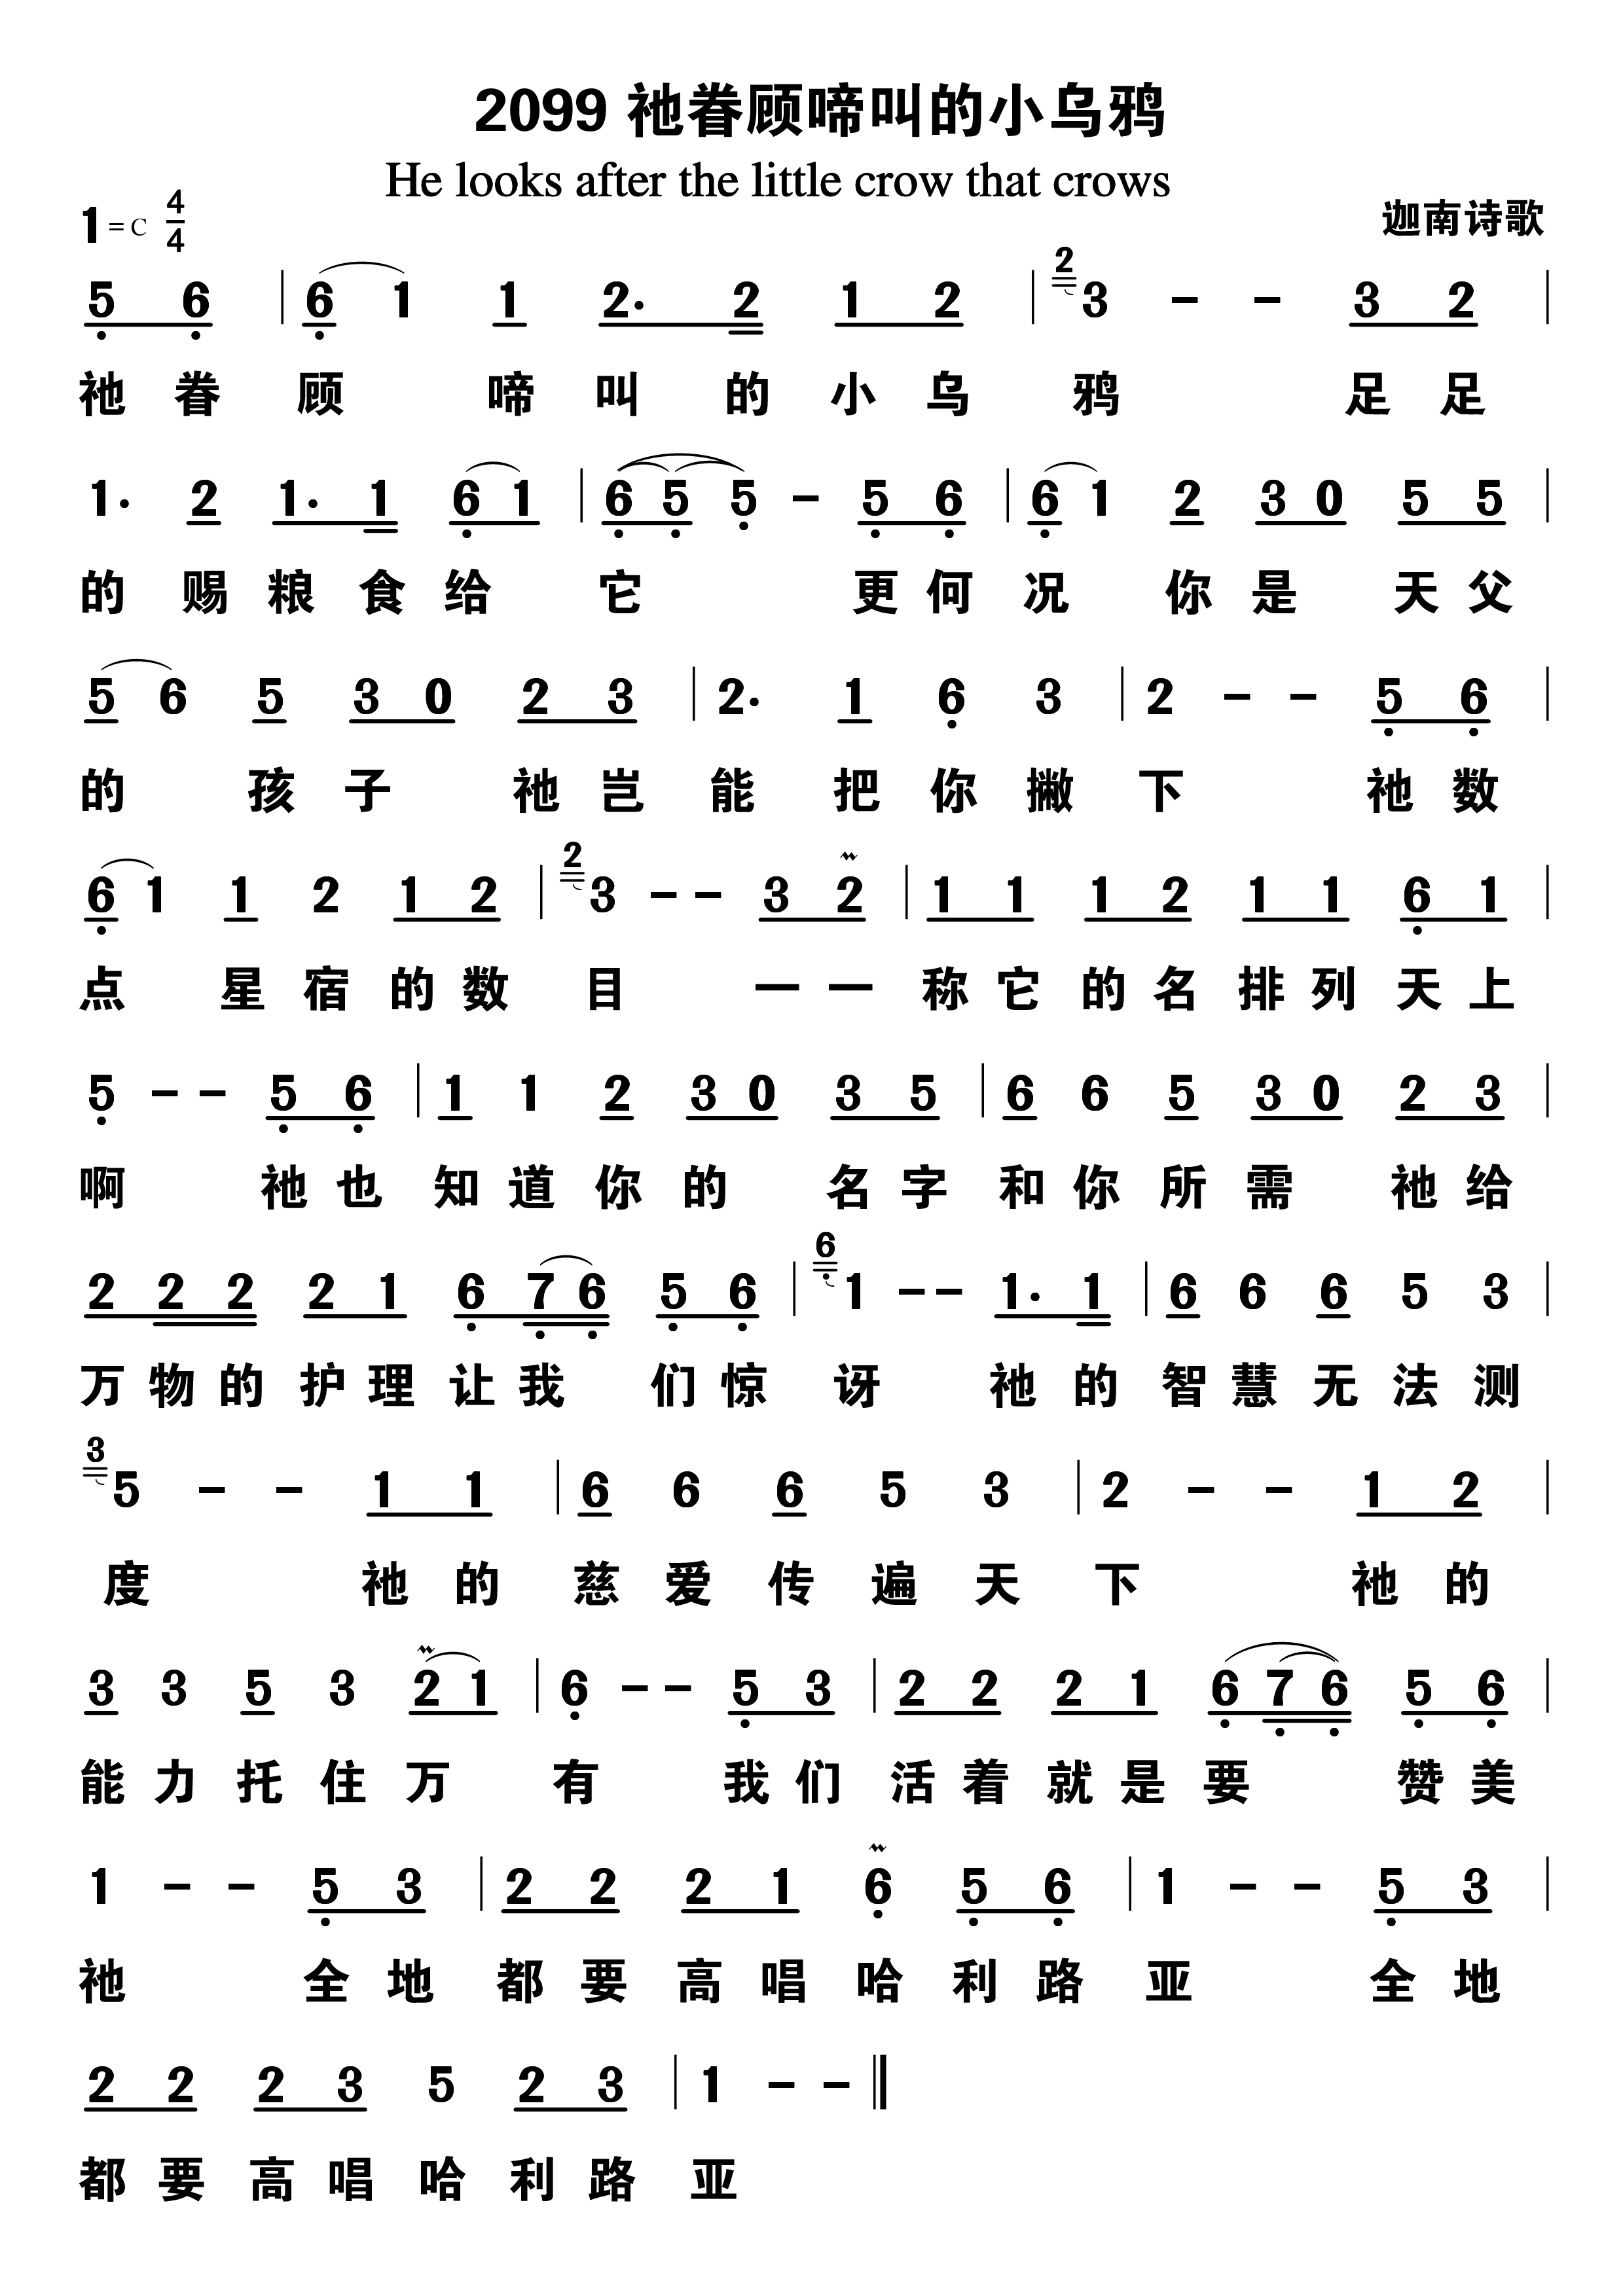 2099 祂眷顾啼叫的小乌鸦
He looks after the little crow that crows
1=C 4/4
迦南诗歌
5 6 | 6 1 1 2. 2 1 2 | 2 3 - - 3 2 |
祂 眷 顾 啼 叫 的 小 乌 鸦 足 足
1. 2 1. 1 6 1 | 6 5 5 - 5 6 | 6 1 2 3 0 5 5 |
的 赐 粮 食 给 它 更 何 况 你 是 天 父
5 6 5 3 0 2 3 | 2. 1 6 3 | 2 - - 5 6 |
的 孩 子 祂 岂 能 把 你 撇 下 祂 数
6 1 1 2 1 2 | 2 3 - - 3 2 | 1 1 1 2 1 1 6 1 |
点 星 宿 的 数 目 一 一 称 它 的 名 排 列 天 上
5 - - 5 6 | 1 1 2 3 0 3 5 | 6 6 5 3 0 2 3 |
啊 祂 也 知 道 你 的 名 字 和 你 所 需 祂 给
2 2 2 2 1 6 7 6 5 6 | 6 1 - - 1. 1 | 6 6 6 5 3 |
万 物 的 护 理 让 我 们 惊 讶 祂 的 智 慧 无 法 测
3 5 - - 1 1 | 6 6 6 5 3 | 2 - - 1 2 |
度 祂 的 慈 爱 传 遍 天 下 祂 的
3 3 5 3 2 1 | 6 - - 5 3 | 2 2 2 1 6 7 6 5 6 |
能 力 托 住 万 有 我 们 活 着 就 是 要 赞 美
1 - - 5 3 | 2 2 2 1 6 5 6 | 1 - - 5 3 |
祂 全 地 都 要 高 唱 哈 利 路 亚 全 地
2 2 2 3 5 2 3 | 1 - - ‖
都 要 高 唱 哈 利 路 亚